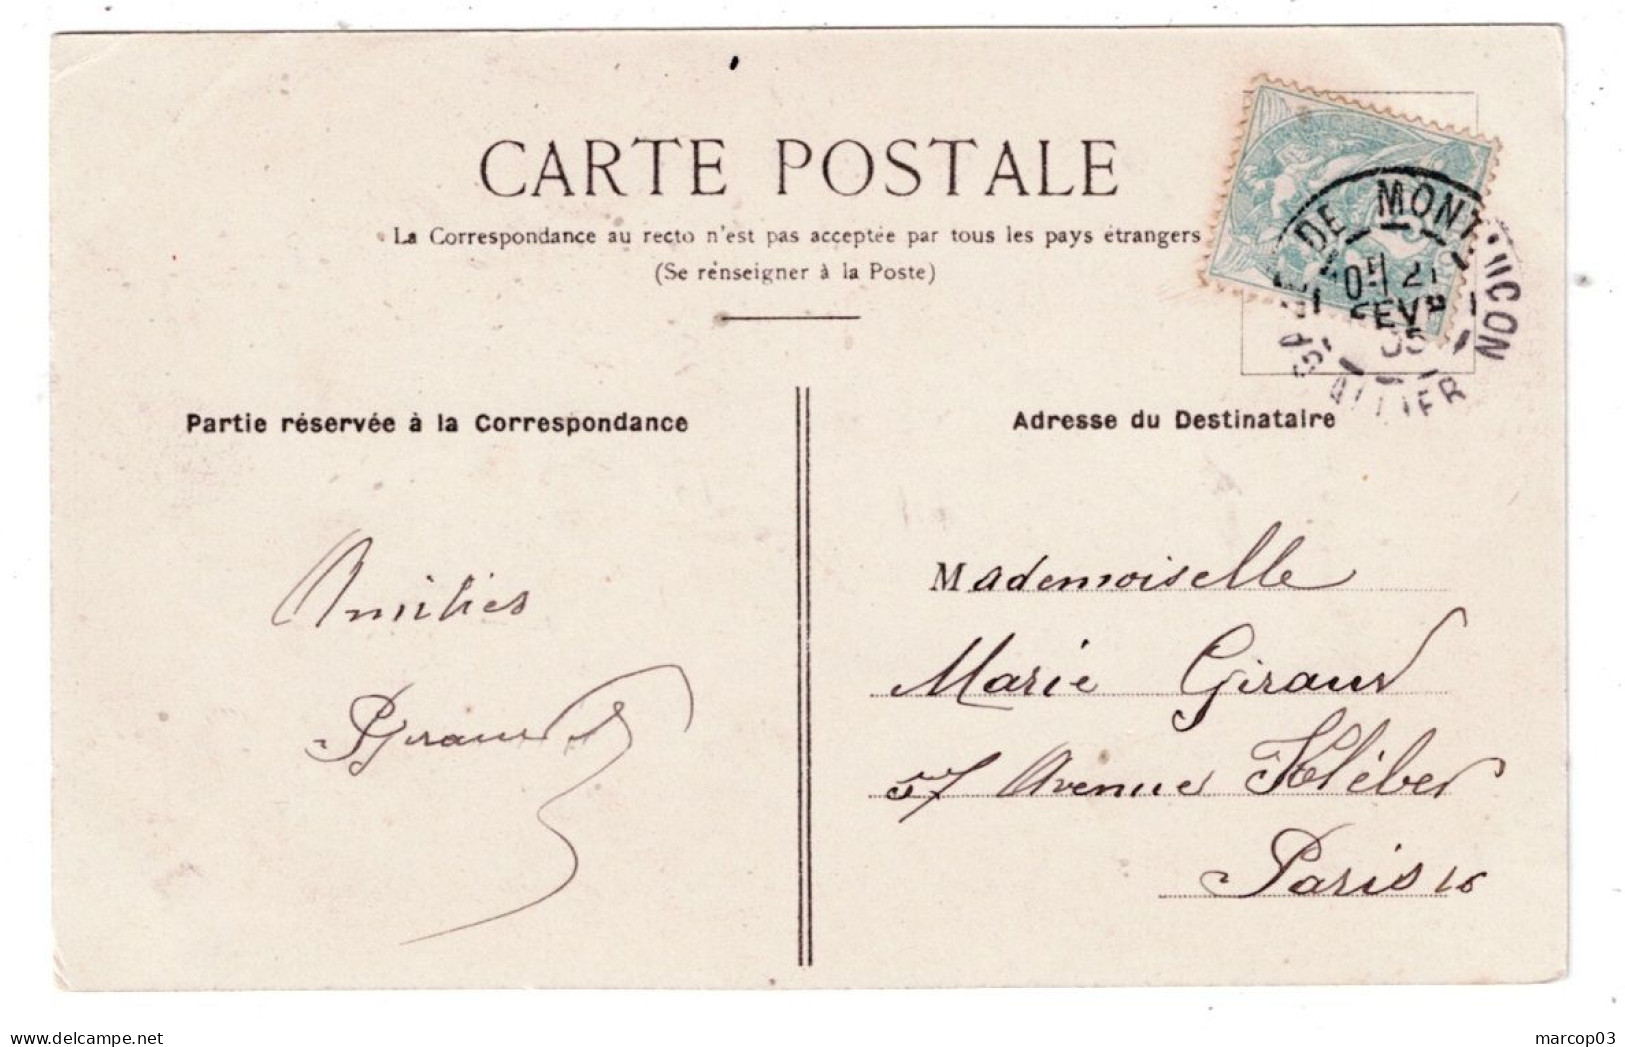 CARTE POSTALE
La Correspondance au recto n'est pas acceptée par tous les pays étrangers
(Se renseigner à la Poste)
GARE DE MONTLUCON
21
FEVR
05
ALLIER
Partie réservée à la Correspondance
Adresse du Destinataire
Amitiés
Giraud
Mademoiselle
Marie Giraud
57 Avenue Kléber
Paris 16
www.delcampe.net
marcop03